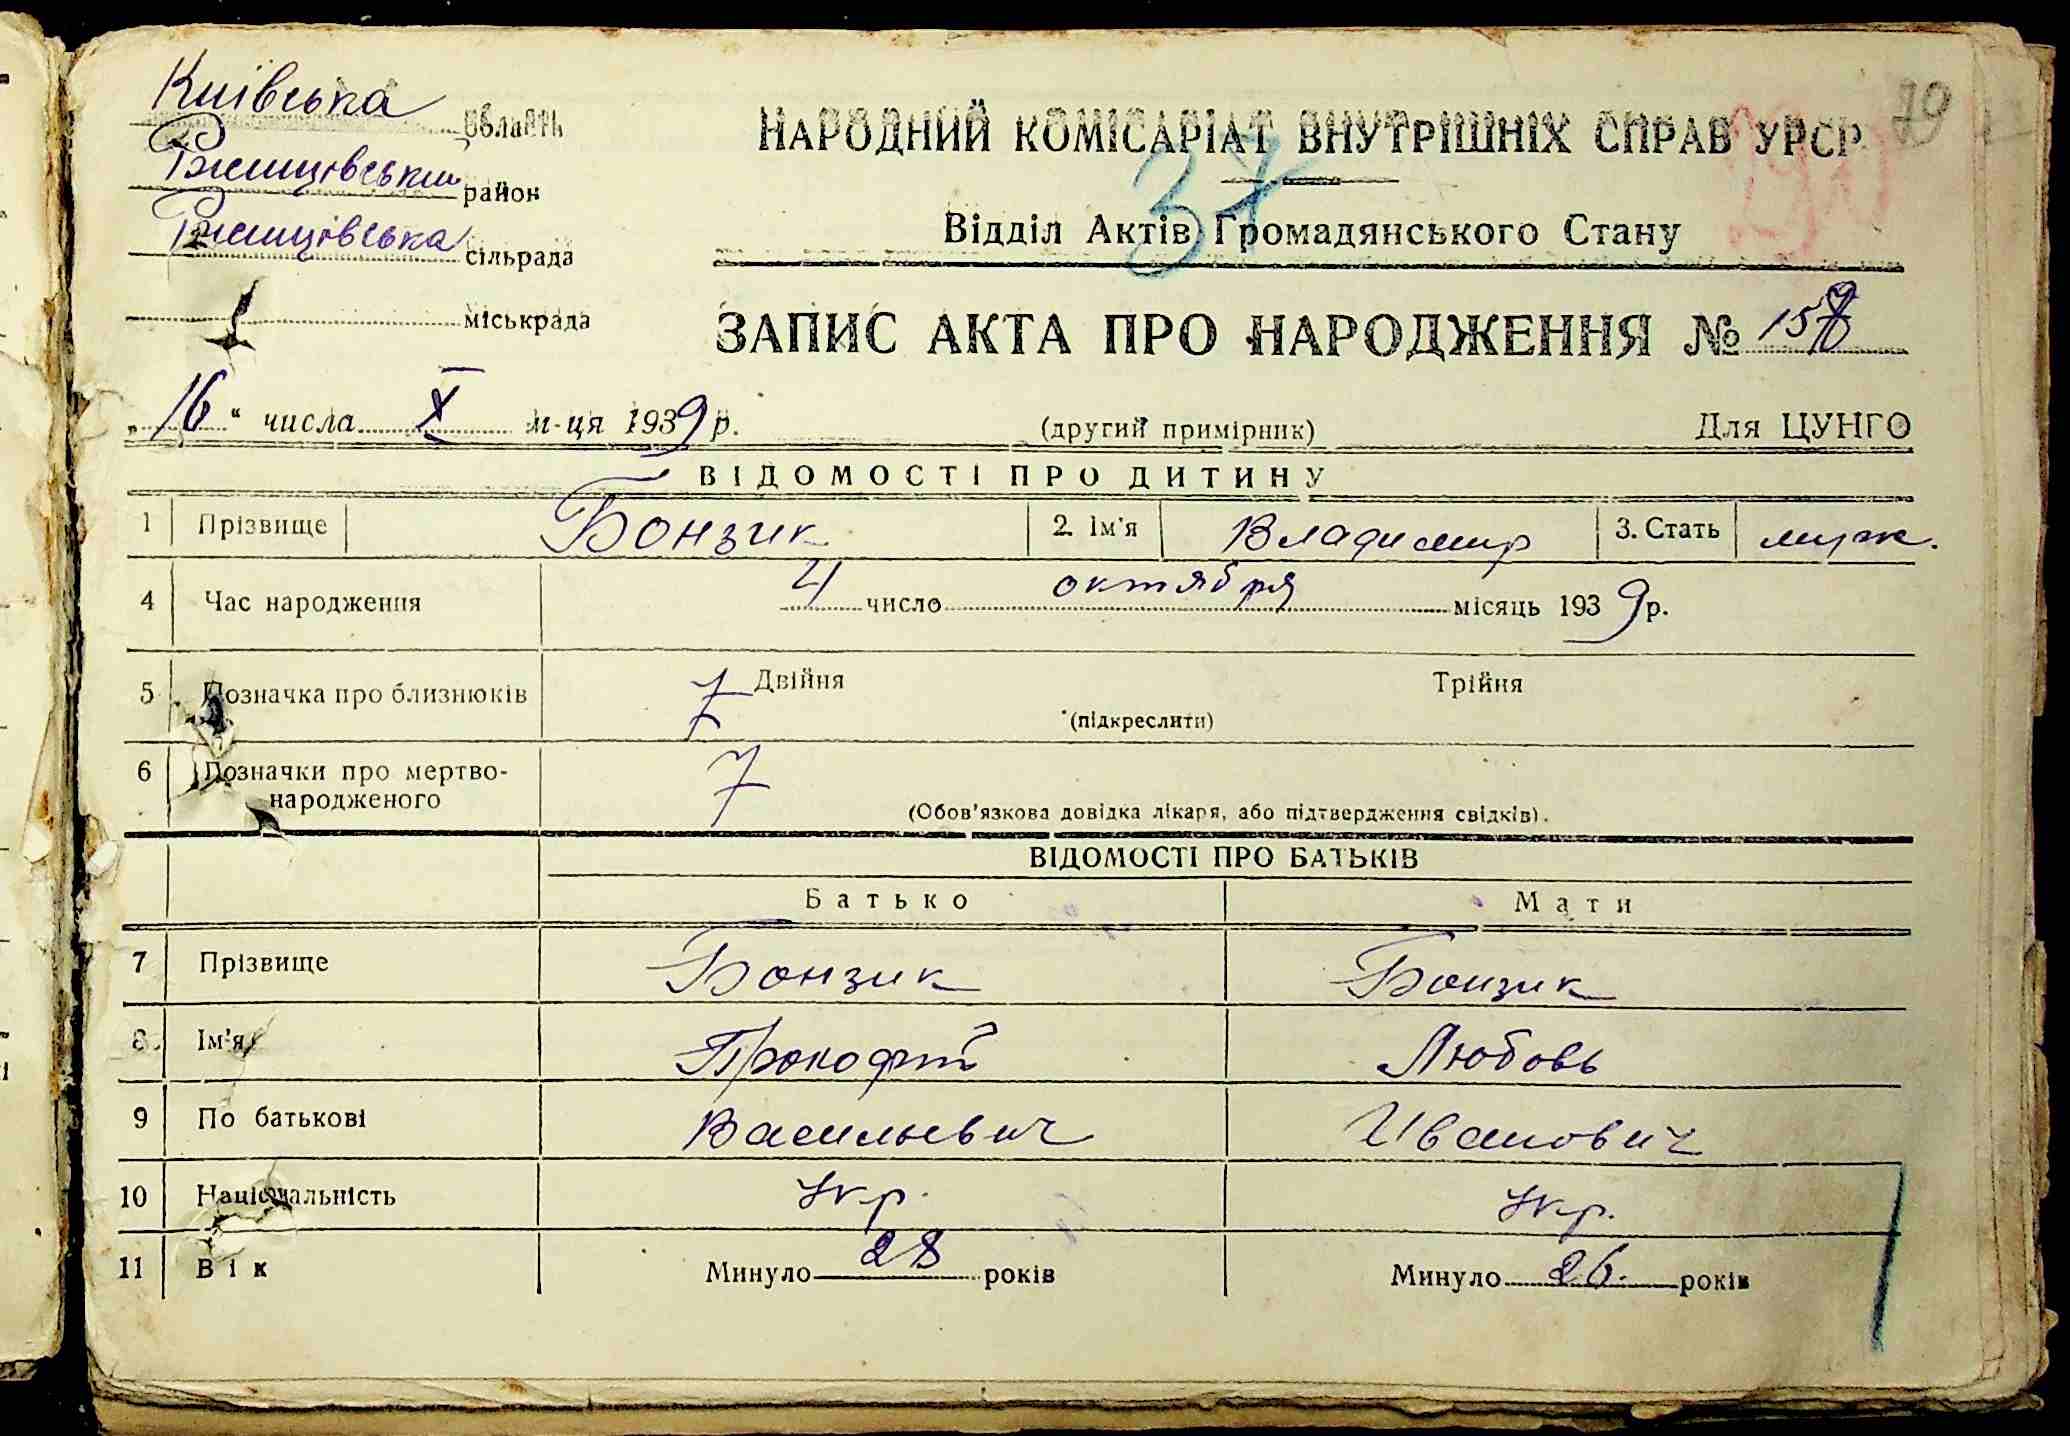 Київська область
Ржищівський район
Ржищівська сільрада
міськрада
НАРОДНИЙ КОМІСАРІАТ ВНУТРІШНІХ СПРАВ УРСР
79
37
Відділ Актів Громадянського Стану
ЗАПИС АКТА ПРО НАРОДЖЕННЯ №
„16“ числа X м-ця 1939 р.
(другий примірник)
Для ЦУНГО
ВІДОМОСТІ ПРО ДИТИНУ
1 Прізвище Бонзик 2. Ім'я Владимир 3. Стать муж.
4 Час народження 4 число октября місяць 1939 р.
5 Позначка про близнюків Двійня Трійня
(підкреслити)
6 Позначки про мертво-
народженого
(Обов'язкова довідка лікаря, або підтвердження свідків).
ВІДОМОСТІ ПРО БАТЬКІВ
Батько Мати
7 Прізвище Бонзик Бонзик
8. Ім'я Прокофий Любовь
9 По батькові Васильевич Иванович
10 Національність Укр. Укр.
11 Вік Минуло 28 років Минуло 26. років